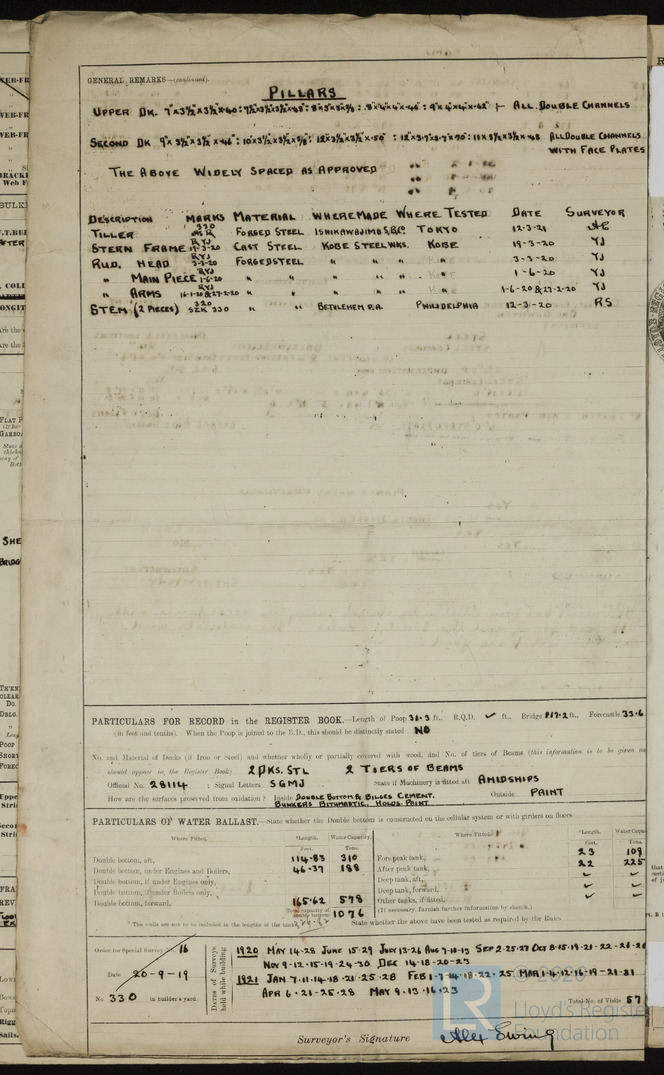 GENERAL REMARKS—(continued).
PILLARS
UPPER DK. ALL DOUBLE CHANNELS
SECOND DK ALL DOUBLE CHANNELS
WITH FACE PLATES
THE ABOVE WIDELY SPACED AS APPROVED
DESCRIPTION MARKS MATERIAL WHERE MADE WHERE TESTED DATE SURVEYOR
TILLER 320 FORGED STEEL TOKYO 12-3-21
STERN FRAME RYJ 19-3-20 CAST STEEL KOBE STEEL WKS. KOBE 19-3-20 YJ
RUD. HEAD RYJ 3-3-20 FORGED STEEL " " " 3-3-20 YJ
" MAIN PIECE RYJ 1-6-20 " " " " 1-6-20 YJ
" ARMS RYJ 16-1-20 & 27-2-20 " " " " 1-6-20 & 27-2-20 YJ
STEM (2 PIECES) 320 SZK 330 " " BETHLEHEM P.A. PHILADELPHIA 12-3-20 RS
PARTICULARS FOR RECORD in the REGISTER BOOK.—Length of Poop 38.3 ft., R.Q.D. ✓ ft., Bridge 117.2 ft., Forecastle 33.6
(in feet and tenths). When the Poop is joined to the B.D., this should be distinctly stated NO
No. and Material of Decks (if Iron or Steel) and whether wholly or partially covered with wood, and No. of tiers of Beams (this information is to be given as
should appear in the Register Book) 2 DKS. STL 2 TIERS OF BEAMS
Official No. 28114 ; Signal Letters SGMJ State if Machinery is fitted aft AMIDSHIPS
How are the surfaces preserved from oxidation? Inside DOUBLE BOTTOM & BILGES CEMENT. Outside PAINT
BUNKERS BITHMASTIC, HOLDS PAINT
PARTICULARS OF WATER BALLAST.—State whether the Double bottom is constructed on the cellular system or with girders on floors
Where Fitted. *Length. Water Capacity. Where Fitted. *Length. Water Capac
Feet. Tons. Feet. Tons.
Double bottom, aft, 114.83 310 Fore peak tank, 23 109
Double bottom, under Engines and Boilers, 46.37 188 After peak tank, 22 225
Double bottom, if under Engines only, Deep tank, aft, ✓ ✓
Double bottom, if under Boilers only, Deep tank, forward, ✓ ✓
Double bottom, forward, 165.62 578 Other tanks, if fitted, ✓ ✓
Total capacity of double bottom 1076 (If necessary, furnish further information by sketch.)
* The wells are not to be included in the lengths of the tanks. State whether the above have been tested as required by the Rules
Order for Special Survey 16
Date 20-9-19
No. 330 in builder's yard.
Dates of Surveys held while building
1920 MAY 14-28 JUNE 15-29 JULY 13-26 AUG 7-10-13 SEP 2-25-27 OCT 8-15-19-21-22
NOV 9-12-15-19-24-30 DEC 14-18-20-23
1921 JAN 7-11-14-18-21-25-28 FEB 1-7-14-18-22-25 MAR 1-4-12-16-19-21-31
APR 6-21-25-28 MAY 9-13-16-23
Total No. of Visits 57
Surveyor's Signature Alex Ewing
© 2020
Lloyd's Register
Foundation